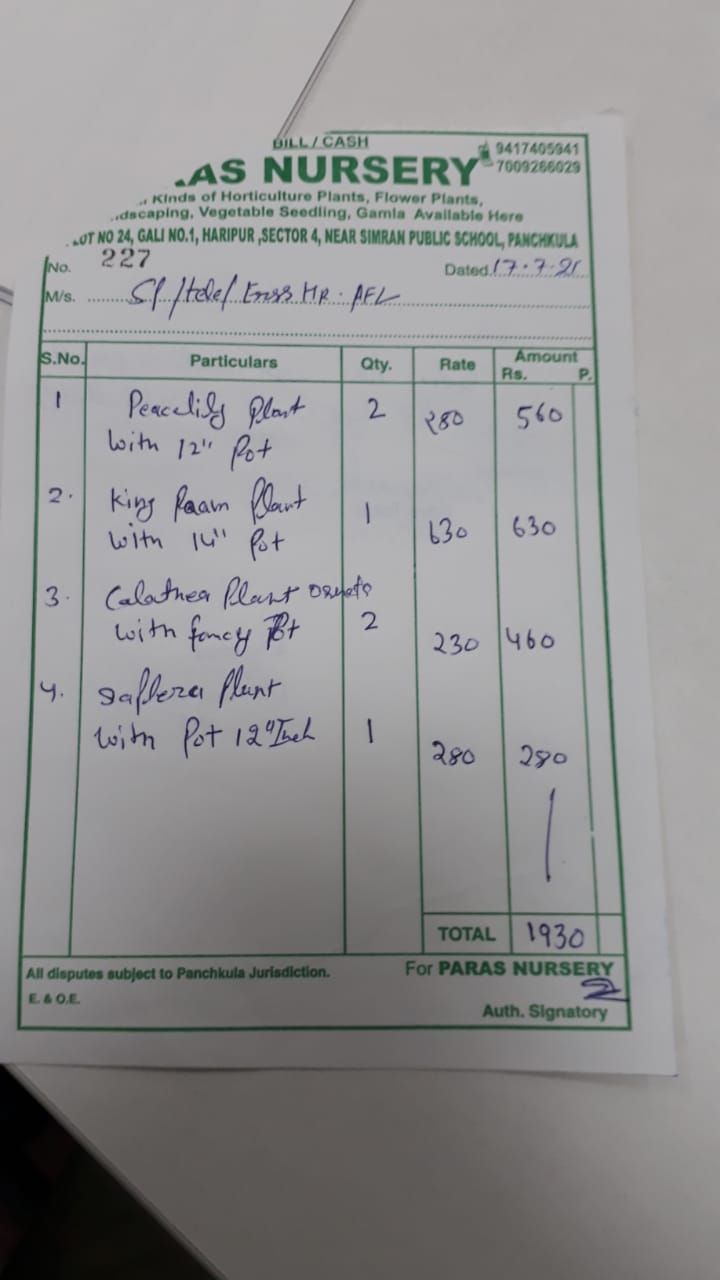 BILL / CASH
9417405941
7009266029
AS NURSERY
Kinds of Horticulture Plants, Flower Plants,
dscaping, Vegetable Seedling, Gamla Available Here
LOT NO 24, GALI NO.1, HARIPUR ,SECTOR 4, NEAR SIMRAN PUBLIC SCHOOL, PANCHKULA
No. 227 Dated 17.7.21
M/s. HR. AFL
S.No. Particulars Qty. Rate Amount
Rs. P.
1 Peacelily Plant 2 280 560
with 12" Pot
2. King Paam Plant 1 630 630
with 14" Pot
3. Calathea Plant
with fancy Pot 2 230 460
4. Saflera Plant
with Pot 12" Inch 1 280 280
TOTAL 1930
All disputes subject to Panchkula Jurisdiction. For PARAS NURSERY
E. & O.E.
Auth. Signatory